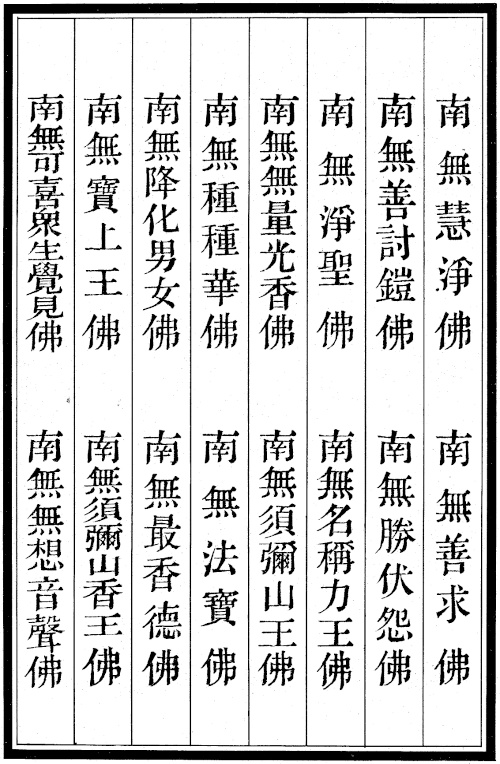 南無慧淨佛　南無善求佛
南無善討鎧佛　南無勝伏怨佛
南無淨聖佛　南無名稱力王佛
南無無量光香佛　南無須彌山王佛
南無種種華佛　南無法寶佛
南無降化男女佛　南無最香德佛
南無寶上王佛　南無須彌山香王佛
南無可喜衆生覺見佛　南無無想音聲佛